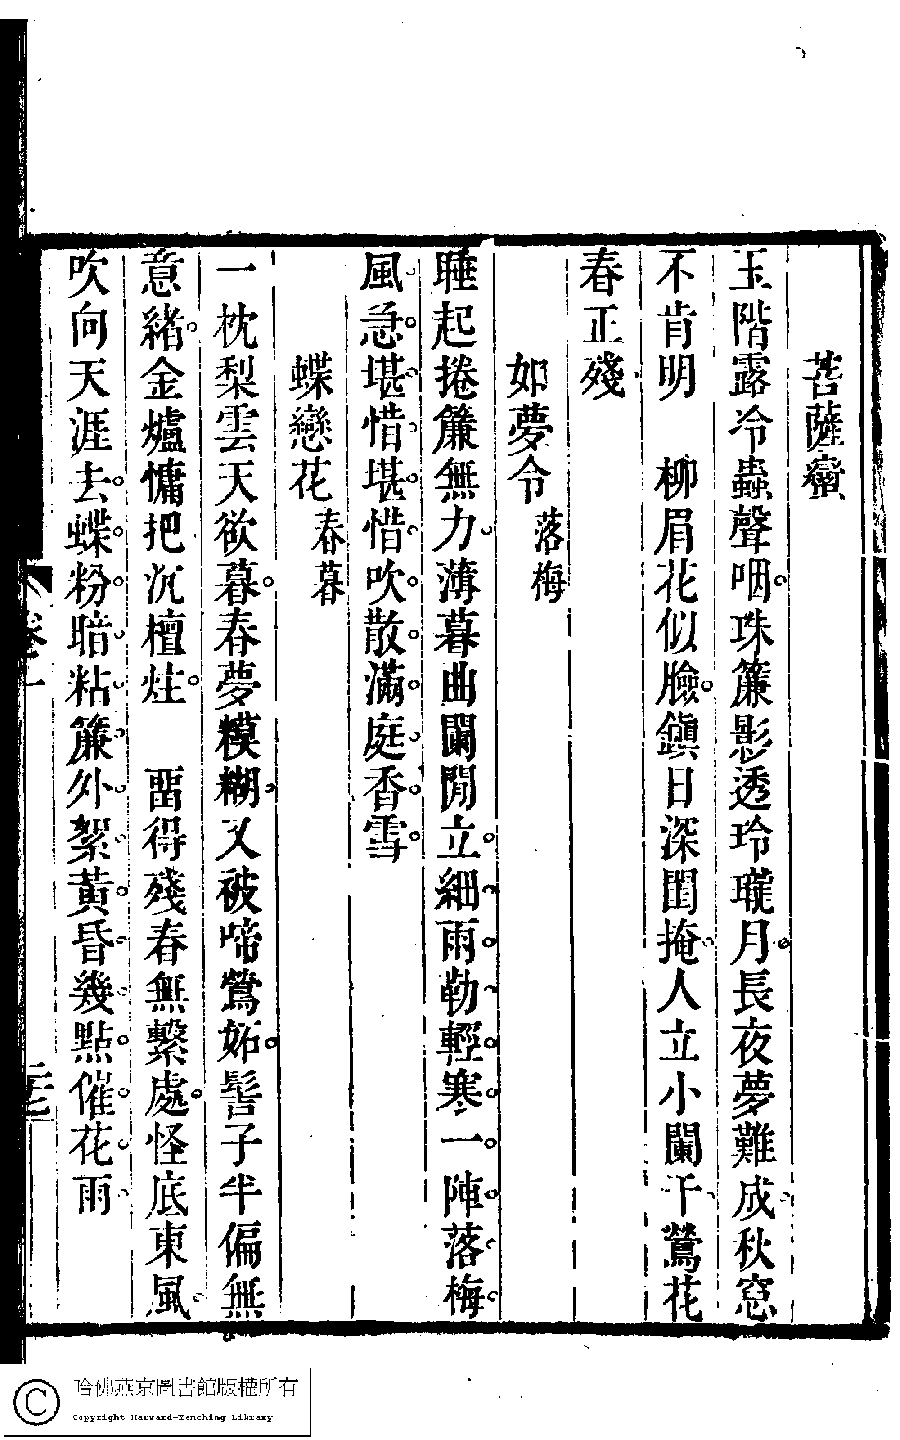 菩薩蠻
玉階露冷蟲聲咽珠簾影透玲瓏月長夜夢難成秋窓
不肯明　柳眉花似臉鎭日深閨掩人立小闌干鶯花
春正殘
如夢令 落梅
睡起捲簾無力薄暮曲闌閒立細雨勒輕寒一陣落梅
風急堪惜堪惜吹散滿庭香雪
蝶戀花 春暮
一枕梨雲天欲暮春夢糢糊又被啼鶯妬髻子半偏無
意緒金爐慵把沉檀炷　畱得殘春無繫處怪底東風
吹向天涯去蝶粉暗粘簾外絮黃昏幾點催花雨
哈佛燕京圖書館版權所有
Copyright Harvard-Yenching Library